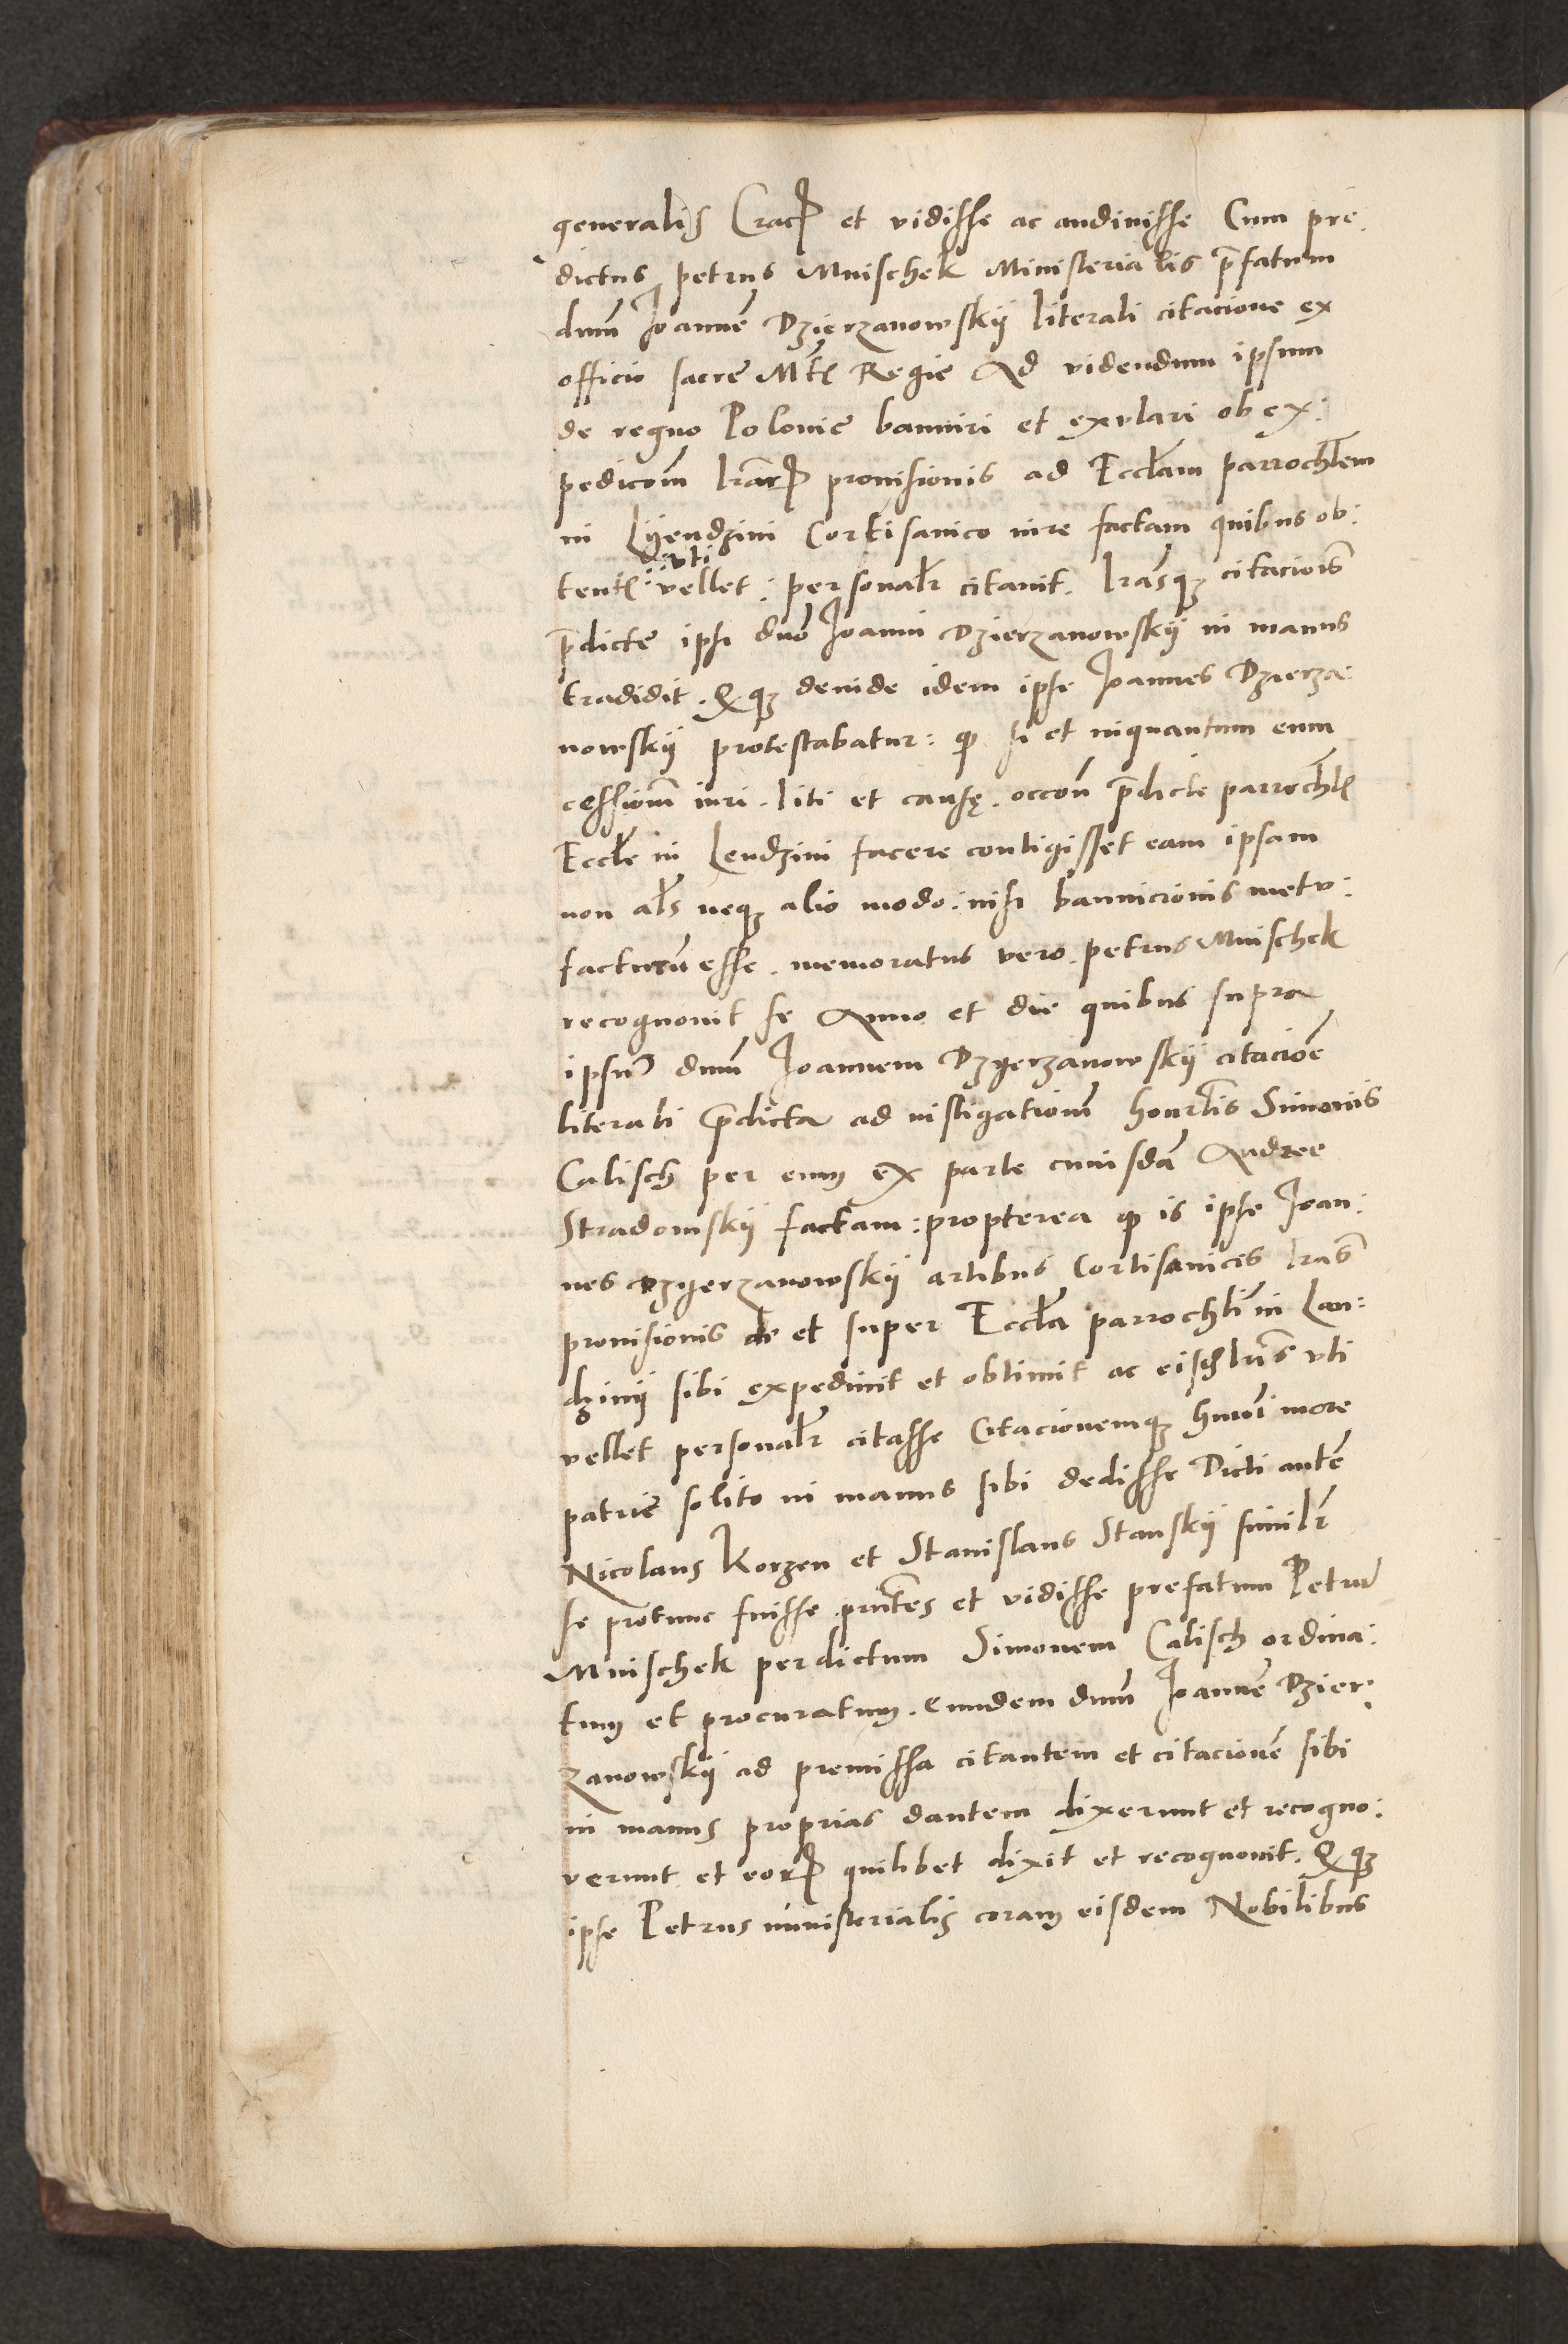 generalis Cracꝝ et vidisse ac audivisse Cum pre:
dictus petrus Mnischek Ministerialis p̄fatum
dnm̄ Joannē Dzierzanowskij literali citacione ex
officio sacrę Mt̄ꝭ Regie Ad videndum ipsum
de regno Polonię banniri et exulari ob ex:
pedicōm lr̄arꝝ provisionis ad Eccl̄am parrochl̄em
in Lÿendzini Cortisanico iure factam quibus ob:
tentꝭ uti vellet: personalr̄ citavit. lr̄asqꝫ citaciōis
p̄dictę ipsi dn̄o Joanni Dzierzanowskij in manus
tradidit. Qqꝫ deinde idem ipse Joannes Dzierza:
nowskij protestabatur: ꝙ si et inquantum eum
cessionm̄ iuri. liti et causę. occōn p̄dicte parrochl̄ꝭ
Eccl̄e in Lendzini facere contigisset eam ipsam
non al̄s neqꝫ alio modo: nisi bannicionis metu:
facturū esse. memoratus vero. petrus Mnischek
recognovit se Anno et die quibus supra
ipsum dnm̄ Joannem Dzyerzanowskij citaciōe
literali p̄dicta ad instigationm̄ honr̄lis Simonis
Calisch per eum ex parte cuiusdā Andree
Stradomskij factam: propterea ꝙ is ipse Joan:
nes Dzyerzanowskij artibus Cortisanicis lr̄as
provisionis de et super Eccl̄a parrochl̄i in Lan:
dzinij sibi expedivit et obtinuit ac eisdem lr̄is uti
vellet personalr̄ citasse Citacionemqꝫ hmōi more
patrię solito in manus sibi dedisse Dicti autē
Nicolaus Korzen et Stanislaus Stanskij similr̄
se protunc fuisse prn̄tes et vidisse prefatum Petrū
Mnischek per dictum Simonem Calisch ordina:
tum et procuratum. eundem dnm̄ Joannē Dzier:
zanowskij ad premissa citantem et citacionē sibi
in manus proprias dantem dixerunt et recogno:
verunt et eorꝝ quilibet dixit et recognovit. Qqꝫ
ipse Petrus ministerialis coram eisdem Nobilibus